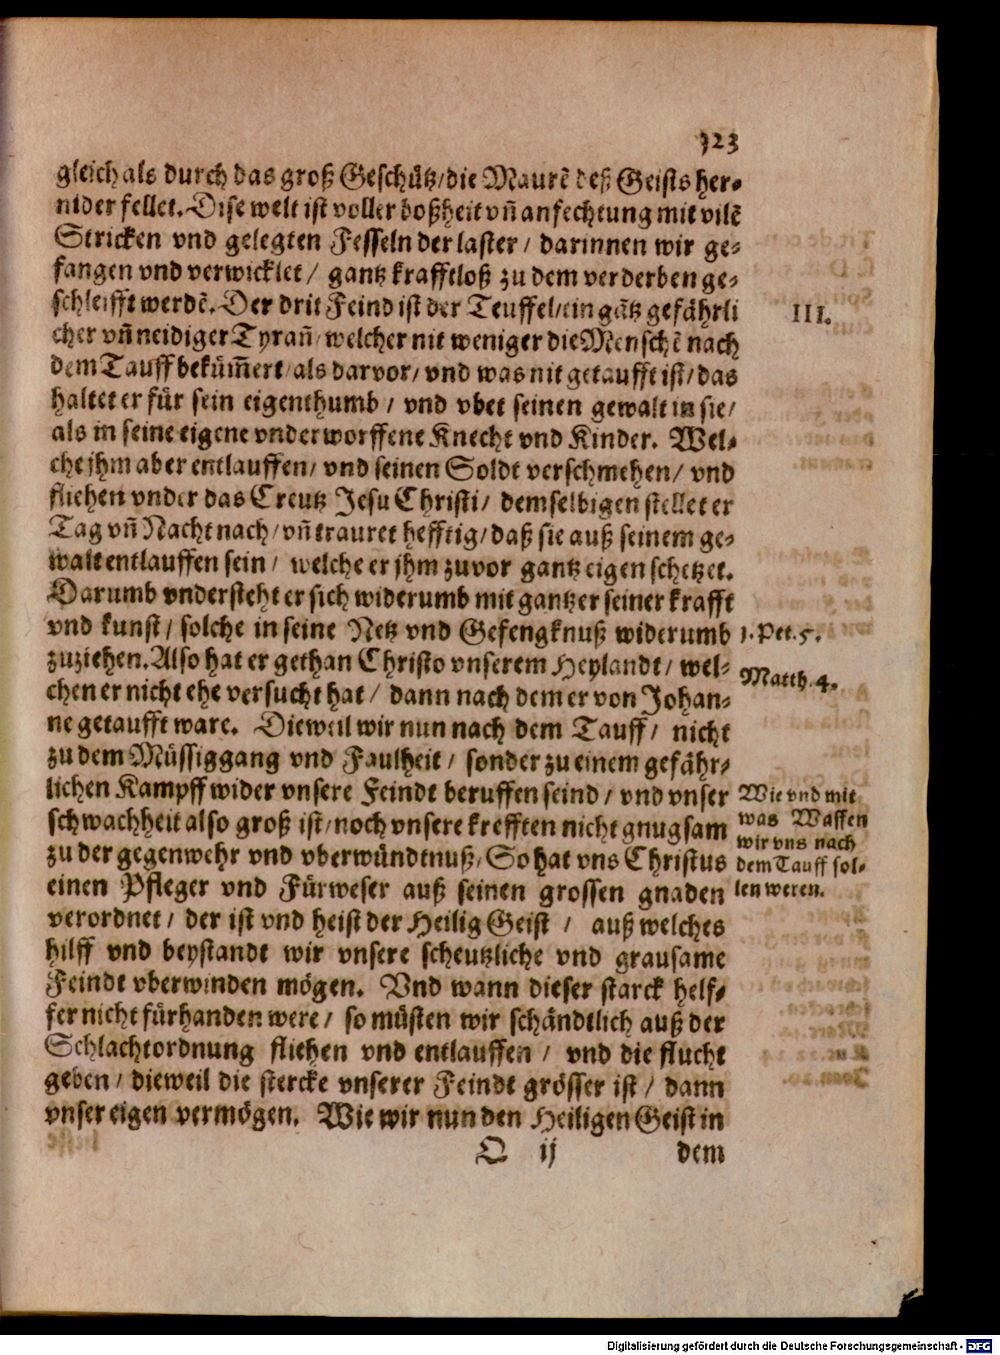 323
gleich als durch das groß Geschütz/die Maurẽ deß Geists her-
nider fellet. Dise welt ist voller boßheit vñ anfechtung mit vilẽ
Stricken vnd gelegten Fesseln der laster / darinnen wir ge-
fangen vnd verwicklet / gantz krafftloß zu dem verderben ge-
schleifft werdẽ. Der drit Feind ist der Teuffel/ein gãtz gefährli
cher vñ neidiger Tyrañ/welcher nit weniger die Menschẽ nach
dem Tauff beküm̃ert/als darvor/ vnd was nit getaufft ist/das
haltet er für sein eigenthumb / vnd vbet seinen gewalt in sie/
als in seine eigene vnderworffene Knecht vnd Kinder. Wel-
che jhm aber entlauffen/ vnd seinen Soldt verschmehen/ vnd
fliehen vnder das Creutz Jesu Christi/ demselbigen stellet er
Tag vñ Nacht nach/vñ trauret hefftig/daß sie auß seinem ge-
walt entlauffen sein / welche er jhm zuvor gantz eigen schetzet.
Darumb vndersteht er sich widerumb mit gantzer seiner krafft
vnd kunst/ solche in seine Netz vnd Gefengknuß widerumb
zuziehen. Also hat er gethan Christo vnserem Heylandt/ wel-
chen er nicht ehe versucht hat / dann nach dem er von Johan-
ne getaufft ware. Dieweil wir nun nach dem Tauff/ nicht
zu dem Müssiggang vnd Faulheit / sonder zu einem gefähr-
lichen Kampff wider vnsere Feindt beruffen seind / vnd vnser
schwachheit also groß ist/noch vnsere krefften nicht gnugsam
zu der gegenwehr vnd vberwündtnuß/ So hat vns Christus
einen Pfleger vnd Fürweser auß seinen grossen gnaden
verordnet/ der ist vnd heist der Heilig Geist / auß welches
hilff vnd beystandt wir vnsere scheutzliche vnd grausame
Feindt vberwinden mögen. Vnd wann dieser starck helf-
fer nicht fürhanden were/ so müsten wir schändtlich auß der
Schlachtordnung fliehen vnd entlauffen / vnd die flucht
geben / dieweil die stercke vnserer Feindt grösser ist / dann
vnser eigen vermögen. Wie wir nun den Heiligen Geist in
O ij dem
III.
1. Pet. 5.
Matth. 4.
Wie vnd mit
was Waffen
wir vns nach
dem Tauff sol-
len weren.
Digitalisierung gefördert durch die Deutsche Forschungsgemeinschaft - DFG